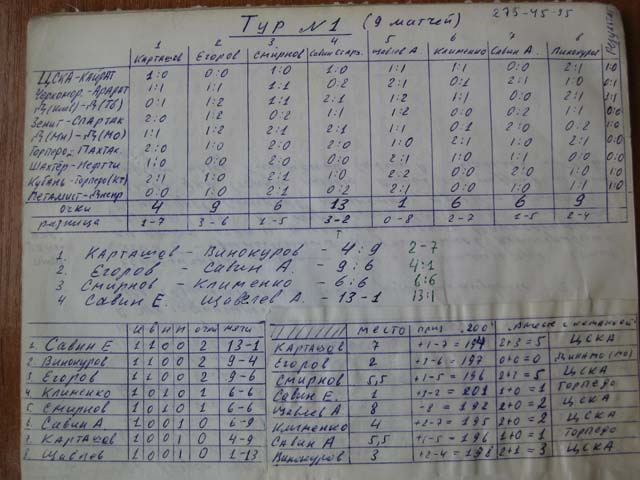 ТУР №1 (9 матчей)
275-45-35
1 2 3 4 5 6 7 8
Карташов Егоров Смирнов Савин Щавлев А Клименко Савин А. Винокуров
ЦСКА-Кайрат 1:0 0:0 1:0 1:0 1:1 1:1 0:0 2:1 1:0
Черномор.-Арарат 1:1 1:1 1:1 0:2 2:1 0:1 2:1 1:0
1:2 1:1 2:1 1:2 1:1 0:0 2:1
Зенит-Спартак 2:0 1:2 0:2 1:1 1:2 0:0 0:2 1:1
Д(Ми)-Д(Мо) 1:1 1:2 2:1 2:1 1:1 0:1 2:0 0:2
Торпедо-Пахтак. 2:0 1:0 2:0 2:0 1:0 2:1 1:0 2:1 0:0
Шахтёр-Нефтчи 1:0 0:0 2:0 0:0 2:1 1:0 1:1 0:0
Кубань-Торпедо(Кт) 2:1 1:0 2:1 1:0 2:2 0:0 2:0 1:0
Металлист-Днепр 0:0 1:0 2:1 0:2 2:1 0:0 1:0 1:1
очки 4 9 6 13 1 6 6 9
разница 1-7 3-6 1-5 3-2 0-8 2-7 1-5 2-4
1. Карташов - Винокуров - 4:9 2-7
2. Егоров - Савин А. - 9:6 4:1
3 Смирнов - Клименко - 6:6 6:6
4 Савин Е. Щавелев А. - 13-1 13:1
и в н п очк мячи
1. Савин Е 1 1 0 0 2 13-1
2. Винокуров 1 1 0 0 2 9-4
3. Егоров 1 1 0 0 2 9-6
4. Клименко 1 0 1 0 1 6-6
5. Смирнов 1 0 1 0 1 6-6
6. Савин А 1 0 0 1 0 6-9
7. Карташов 1 0 0 1 0 4-9
8. Щавлев 1 0 0 1 0 1-13
место приз 200
Карташов 7 +1-7=194 2+3=5 ЦСКА
Егоров 2 +3-6=197 0+0=0 Динамо(мо)
Смирнов 5,5 +1-5=196 ЦСКА
Савин Е. 1 +3-2=201 1+0=1 Торпедо
Щавлев А 8 -8=192 2+0=2 ЦСКА
Клименко 4 +2-7=195 2+0=2 ЦСКА
Савин А 5,5 +1-5=196 1+0=1 Торпедо
Винокуров 3 +2-4=198 2+1=3 ЦСКА